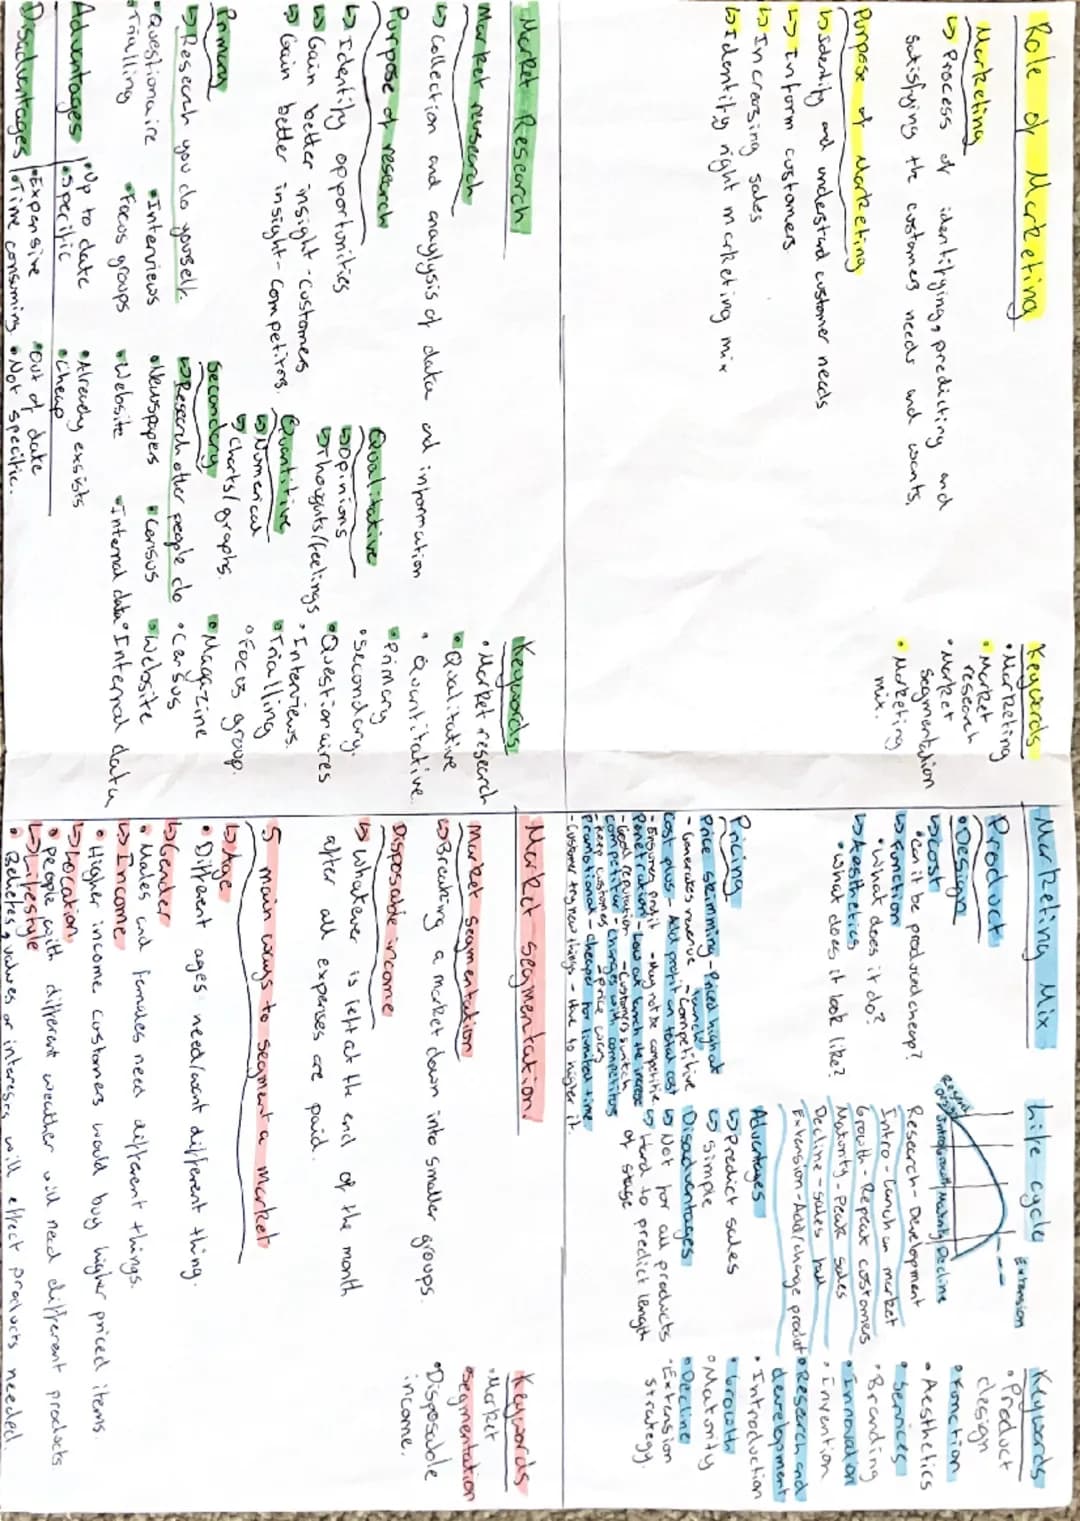 Role of Marketing
Marketing
↳ Process of identifying, predicting and
satisfying the customers needs and wants.
Purpose of Marketing
↳ identify and understand customer needs
↳ Inform customers
↳ Increasing sales
↳ Identify right marketing mix
Keywords
• Marketing
• Market
research
• Market
segmentation
• Marketing
mix.
Marketing Mix
Product
• Design
↳ Cost
• Can it be produced cheap?
↳ Function
• What does it do?
↳ Aesthetics
• What does it look like?
Pricing
Price skimming - Priced high at
launch
- Generates revenue - Competitive
Cost plus - Add profit on total cost
- Ensures profit - May not be competitive
Penetration - Low at launch then increase
- Good reputation - Customers switch
Competitor - Changes with competitors
- Keep customers - price wars
Promotional - cheaper for limited time
- Customer try new things - Have to higher it.
Life-cycle
Extension
Intro Growth Maturity Decline
Research - Development
Intro - Launch on market
Growth - Repeat customers
Maturity - Peak sales
Decline - sales fall
Extension - Add/change product
Advantages
↳ Predict sales
↳ Simple
Disadvantages
↳ Not for all products
↳ Hard to predict length
of stage
Keywords
• Product
design
• Function
• Aesthetics
• Services
• Branding
• Innovation
• Invention
• Research and
development
• Introduction
• Growth
• Maturity
• Decline
• Extension
strategy.
Market Research
Market research
↳ Collection and anaylysis of data and information
Purpose of research
↳ Identify opportunities
↳ Gain better insight - customers
↳ Gain better insight - competitors.
Qualitative
↳ Opinions
↳ Thoughts/feelings
Quantitive
↳ Numerical
↳ Charts/graphs.
Primary
↳ Research you do yourself.
• Questionaire • Interviews
• Trialling • Focus groups
Secondary
↳ Research other people do
• Newspapers • Census • Website
• Website • Internal data
Advantages
• Up to date • Already exsists
• Specific • Cheap
Disadvantages
• Expensive • Out of date
• Time consuming • Not specific.
Keywords
• Market research
• Qualitative
• Quantitative.
• Primary
• Secondary.
• Questionaires
• Interviews.
• Trialling
• Focus group.
• Magazine
• Census
• Website
• Internal data
Market Segmentation
Market segmentation
↳ Breaking a market down into smaller groups.
Disposable income
↳ Whatever is left at the end of the month
after all expenses are paid.
5 main ways to segment a market
↳ Age
• Different ages need/want different thing.
↳ Gender
• Males and females need different things.
↳ Income
• Higher income costomers would buy higher priced items.
↳ Location
• people with different weather will need different products
↳ Lifestyle
• Beliefs, values or interests will effect products needed.
Keywords
• Market
segmentation
• Disposable
income.